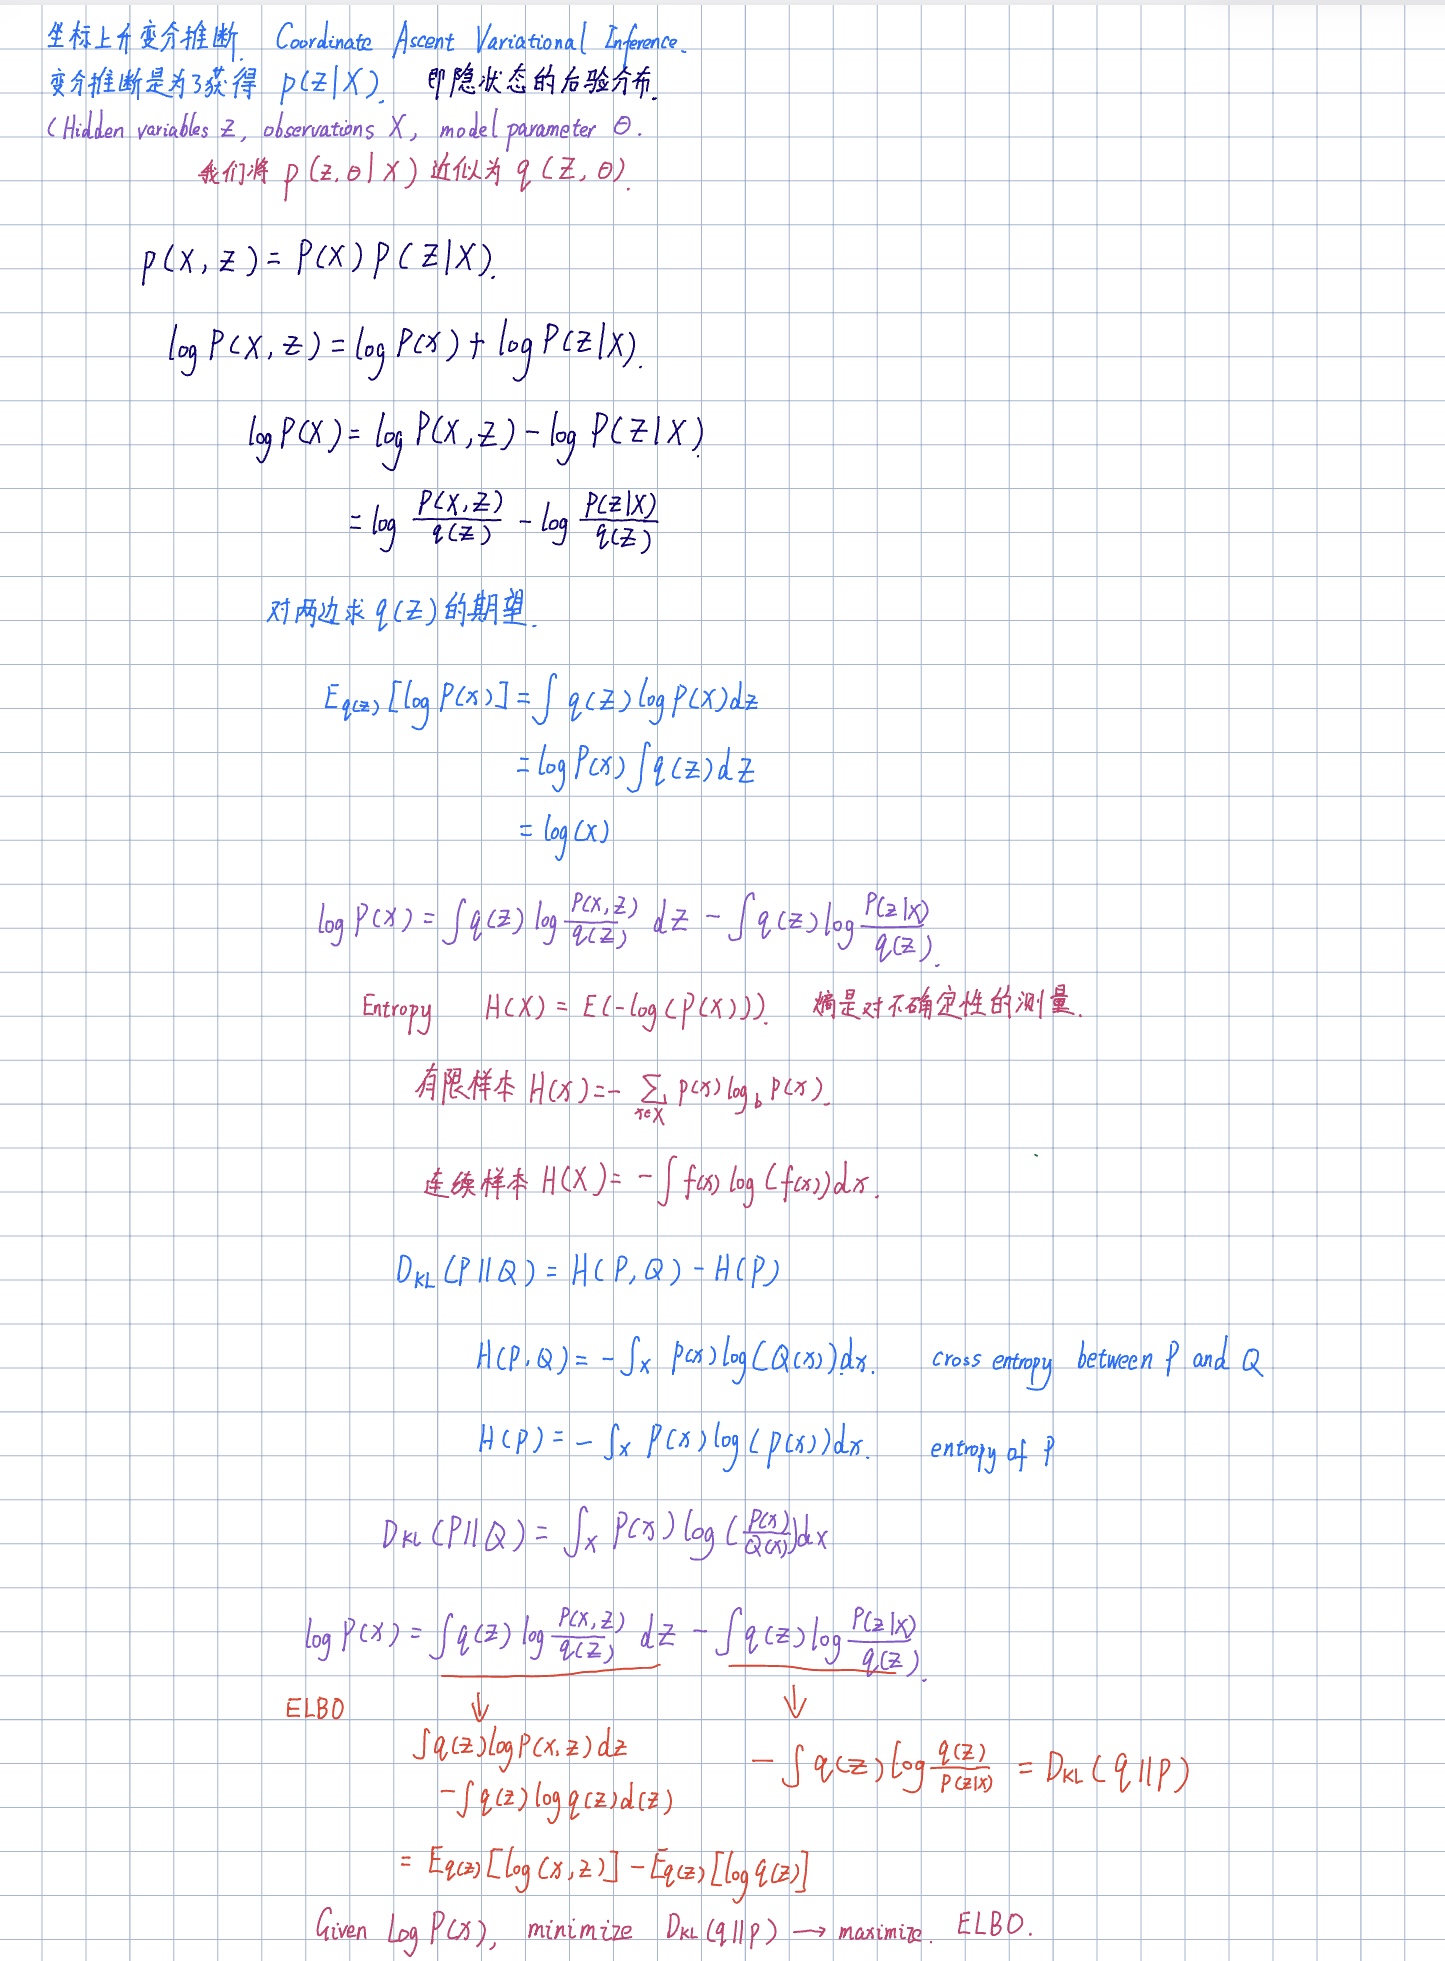 坐标上升变分推断. Coordinate Ascent Variational Inference.
变分推断是为了获得 p(Z|X). 即隐状态的后验分布.
(Hidden variables Z, observations X, model parameter θ.
我们将 p(z,θ|X) 近似为 q(Z,θ).
p(X,Z)=P(X)P(Z|X).
log P(X,Z)=log P(x)+log P(Z|X).
log P(X)=log P(X,Z)-log P(Z|X)
=log \frac{P(X,Z)}{q(Z)} - log \frac{P(Z|X)}{q(Z)}
对两边求 q(Z) 的期望.
E_{q(z)}[log P(x)]=∫ q(Z) log P(X) dz
=log P(x) ∫ q(Z) dZ
=log(x)
log P(X)=∫ q(Z) log \frac{P(X,Z)}{q(Z)} dZ - ∫ q(Z) log \frac{P(Z|X)}{q(Z)}.
Entropy H(X)=E(-log(P(X))). 熵是对不确定性的测量.
有限样本 H(x)=- ∑_{x∈X} p(x) log_b P(x).
连续样本 H(X)= -∫ f(x) log(f(x))dx.
D_{KL}(P||Q)=H(P,Q)-H(P)
H(P,Q)= -∫_X P(x) log(Q(x))dx. cross entropy between P and Q
H(P)= -∫_X P(x) log(p(x))dx. entropy of P
D_{KL}(P||Q)=∫_X P(x) log(\frac{P(x)}{Q(x)})dx
log P(X)=∫ q(Z) log \frac{P(X,Z)}{q(Z)} dZ - ∫ q(Z) log \frac{P(Z|X)}{q(Z)}.
ELBO ↓ ↓
∫ q(z) log P(x,z) dz
-∫ q(z) log q(z) d(z)
-∫ q(z) log \frac{q(z)}{P(z|x)} = D_{KL}(q||p)
=E_{q(z)}[log(x,z)]-E_{q(z)}[log q(z)]
Given log P(x), minimize D_{KL}(q||p) → maximize. ELBO.